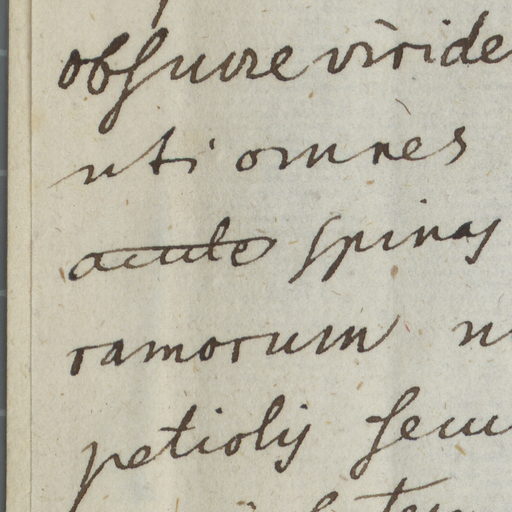 obscure viride
uti omnes
acute spinas
ramorum
petiolis